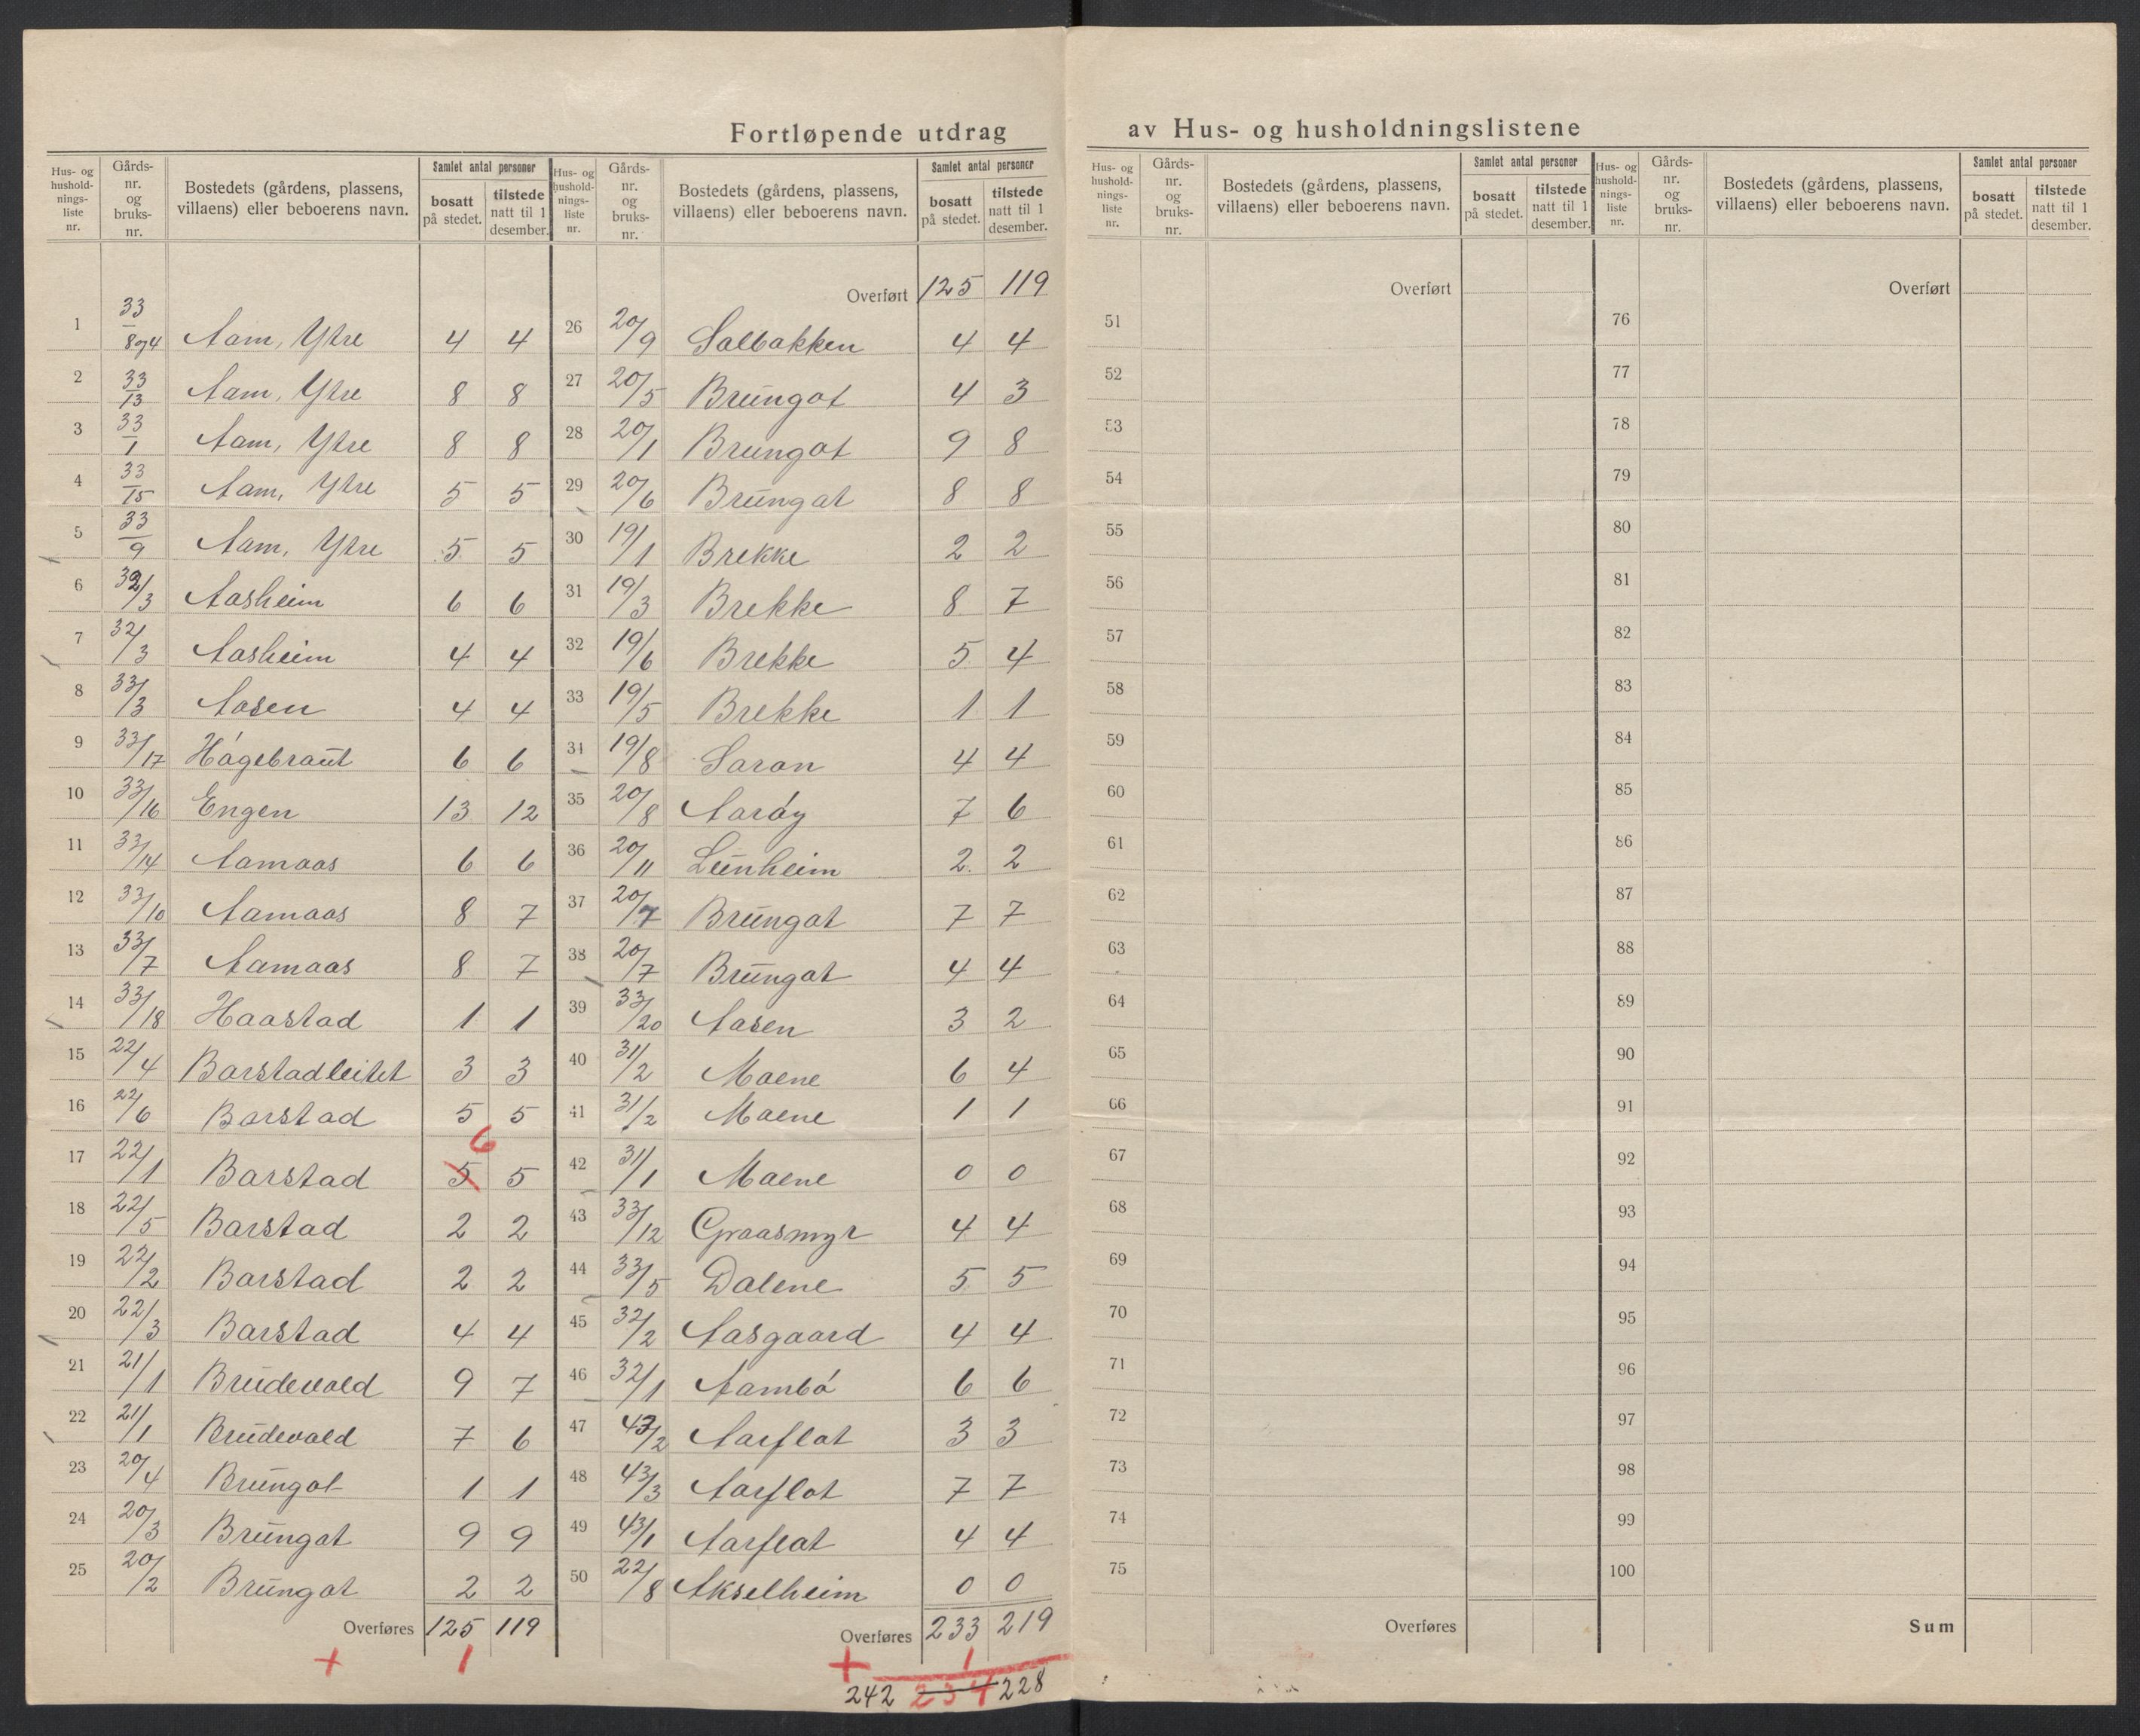 Fortløpende utdrag av Hus- og husholdningslistene
Hus- og hushold-nings-liste nr. Gårds-nr. og bruks-nr. Bostedets (gårdens, plassens, villaens) eller beboerens navn. Samlet antal personer bosatt på stedet. tilstede natt til 1 desember.
1 33/8og4 Aam, Ytre 4 4
2 33/13 Aam, Ytre 8 8
3 33/1 Aam, Ytre 8 8
4 33/15 Aam, Ytre 5 5
5 33/9 Aam, Ytre 5 5
6 32/3 Aasheim 6 6
7 32/3 Aasheim 4 4
8 33/3 Aasen 4 4
9 33/17 Hágebraut 6 6
10 33/16 Engen 13 12
11 33/14 Aamaas 6 6
12 33/10 Aamaas 8 7
13 33/7 Aamaas 8 7
14 33/18 Haastad 1 1
15 22/4 Barstadleitet 3 3
16 22/6 Barstad 5 5
17 22/1 Barstad 5 6 5
18 22/5 Barstad 2 2
19 22/2 Barstad 2 2
20 22/3 Barstad 4 4
21 21/1 Brudevold 9 7
22 21/1 Brudevold 7 6
23 20/4 Brungot 1 1
24 20/3 Brungot 9 9
25 20/2 Brungot 2 2
Overføres 125 119
+ 1
Hus- og hushold-nings-liste nr. Gårds-nr. og bruks-nr. Bostedets (gårdens, plassens, villaens) eller beboerens navn. Samlet antal personer bosatt på stedet. tilstede natt til 1 desember.
Overført 125 119
26 20/9 Solbakken 4 4
27 20/5 Brungot 4 3
28 20/1 Brungot 9 8
29 20/6 Brungot 8 8
30 19/1 Brekke 2 2
31 19/3 Brekke 8 7
32 19/6 Brekke 5 4
33 19/5 Brekke 1 1
34 19/8 Saron 4 4
35 20/8 Aaróy 7 6
36 20/11 Leinheim 2 2
37 20/7 Brungot 7 7
38 20/7 Brungot 4 4
39 33/20 Aasen 3 2
40 31/2 Moene 6 4
41 31/2 Moene 1 1
42 31/1 Moene 0 0
43 33/12 Graasmyr 4 4
44 33/5 Dalene 5 5
45 32/2 Aasgaard 4 4
46 32/1 Aambó 6 6
47 43/2 Aarflot 3 3
48 43/3 Aarflot 7 7
49 43/1 Aarflot 4 4
50 22/8 Akselheim 0 0
Overføres 233 219
+ 1
242 234 228
Hus- og hushold-nings-liste nr. Gårds-nr. og bruks-nr. Bostedets (gårdens, plassens, villaens) eller beboerens navn. Samlet antal personer bosatt på stedet. tilstede natt til 1 desember.
Overført
51
52
53
54
55
56
57
58
59
60
61
62
63
64
65
66
67
68
69
70
71
72
73
74
75
Overføres
Hus- og hushold-nings-liste nr. Gårds-nr. og bruks-nr. Bostedets (gårdens, plassens, villaens) eller beboerens navn. Samlet antal personer bosatt på stedet. tilstede natt til 1 desember.
Overført
76
77
78
79
80
81
82
83
84
85
86
87
88
89
90
91
92
93
94
95
96
97
98
99
100
Sum